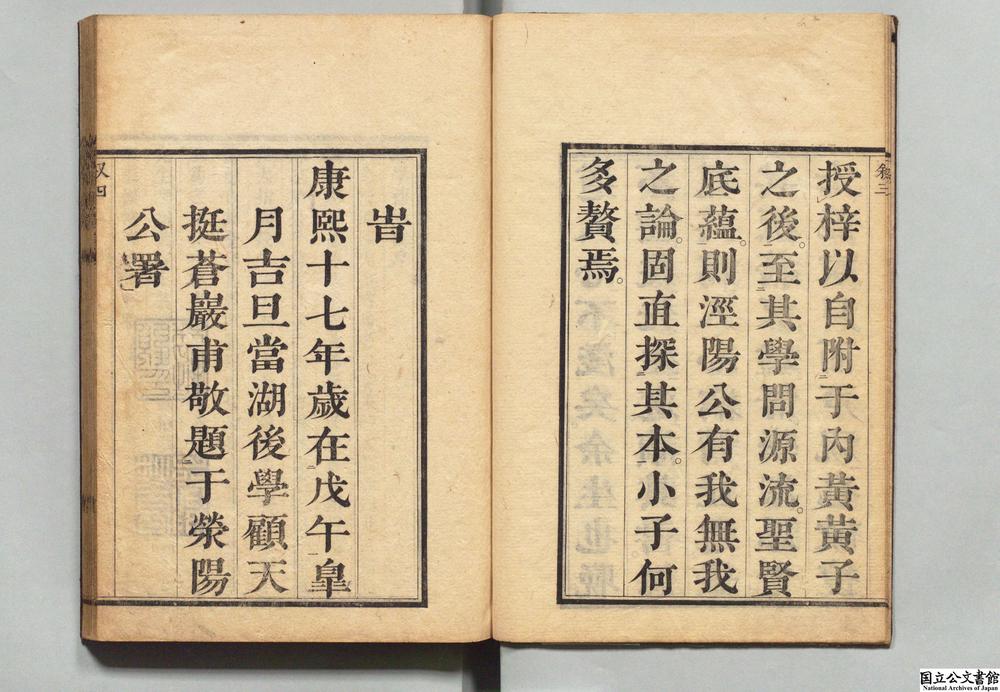 授梓以自附于內黃黃子
之後。至其學問源流。聖賢
底蘊。則涇陽公有我無我
之論。固直探其本。小子何
多贅焉。
旹
康熙十七年歲在戊午皐
月吉旦當湖後學顧天
挺蒼巖甫敬題于滎陽
公署
国立公文書館
National Archives of Japan